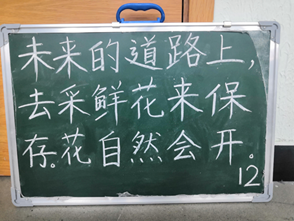 未来的道路上,
去采鲜花来保
存。花自然会开。
12